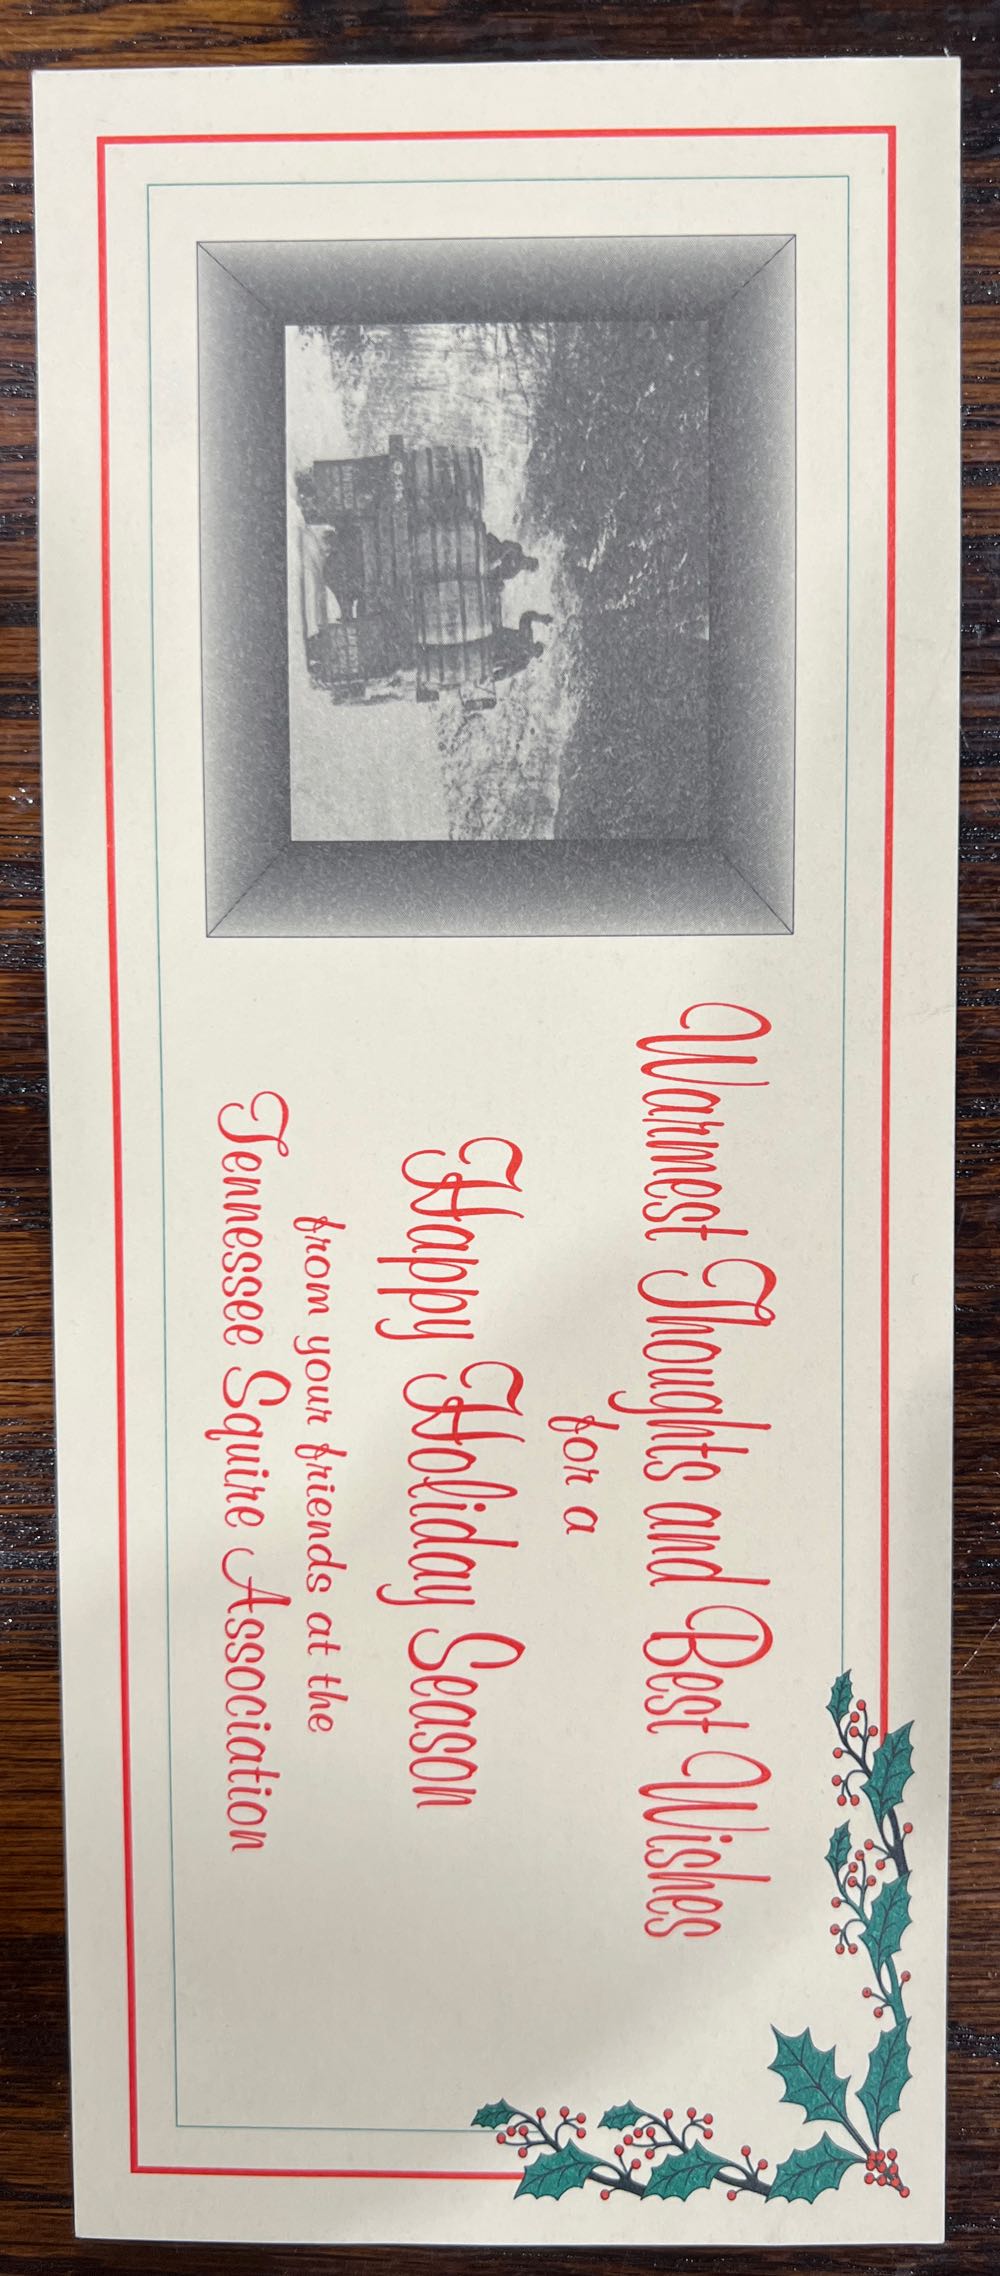 Warmest Thoughts and Best Wishes
for a
Happy Holiday Season
from your friends at the
Tennessee Squire Association